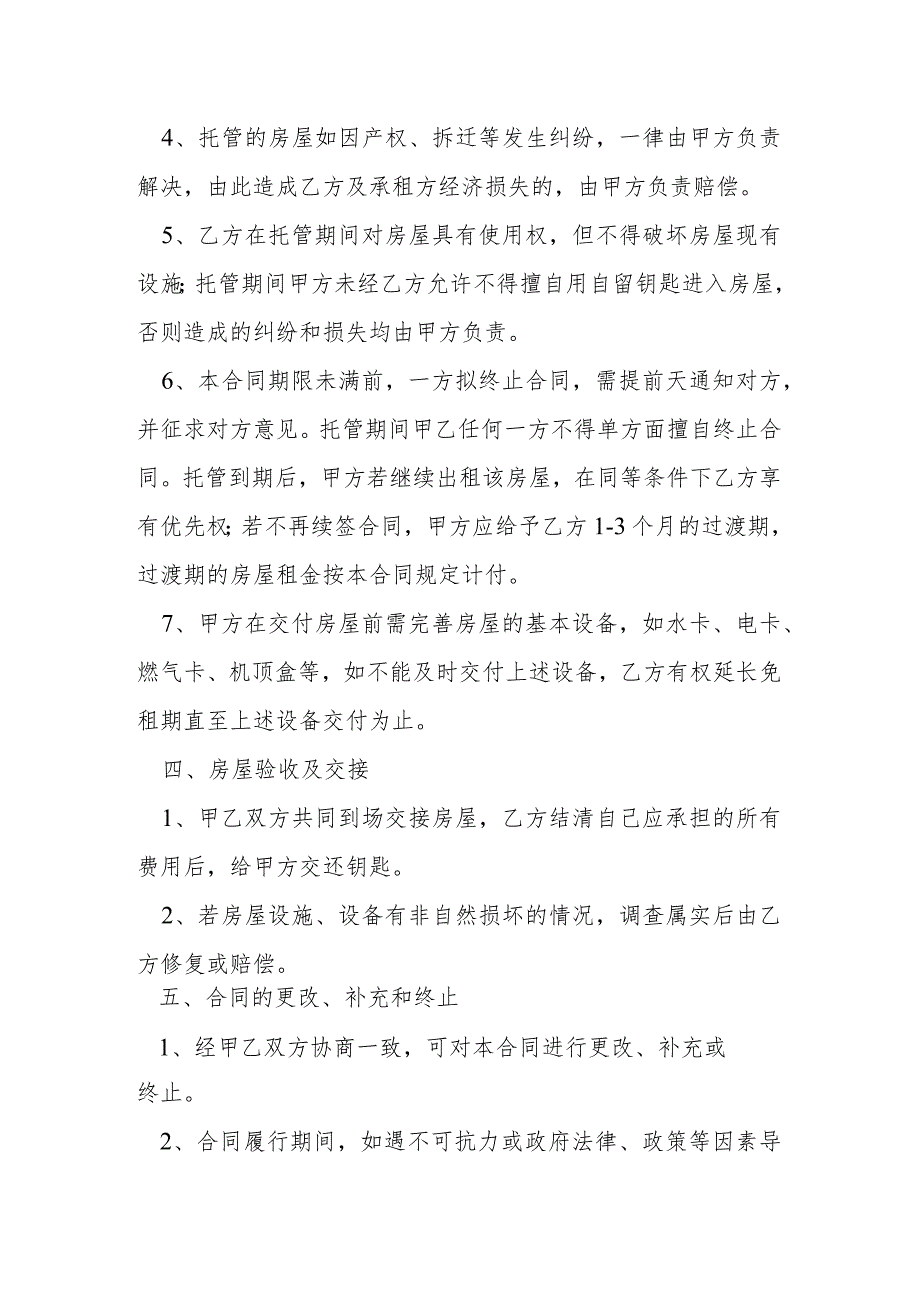 4、托管的房屋如因产权、拆迁等发生纠纷，一律由甲方负责
解决，由此造成乙方及承租方经济损失的，由甲方负责赔偿。
5、乙方在托管期间对房屋具有使用权，但不得破坏房屋现有
设施；托管期间甲方未经乙方允许不得擅自用自留钥匙进入房屋，
否则造成的纠纷和损失均由甲方负责。
6、本合同期限未满前，一方拟终止合同，需提前天通知对方，
并征求对方意见。托管期间甲乙任何一方不得单方面擅自终止合
同。托管到期后，甲方若继续出租该房屋，在同等条件下乙方享
有优先权；若不再续签合同，甲方应给予乙方1-3个月的过渡期，
过渡期的房屋租金按本合同规定计付。
7、甲方在交付房屋前需完善房屋的基本设备，如水卡、电卡、
燃气卡、机顶盒等，如不能及时交付上述设备，乙方有权延长免
租期直至上述设备交付为止。
四、房屋验收及交接
1、甲乙双方共同到场交接房屋，乙方结清自己应承担的所有
费用后，给甲方交还钥匙。
2、若房屋设施、设备有非自然损坏的情况，调查属实后由乙
方修复或赔偿。
五、合同的更改、补充和终止
1、经甲乙双方协商一致，可对本合同进行更改、补充或
终止。
2、合同履行期间，如遇不可抗力或政府法律、政策等因素导